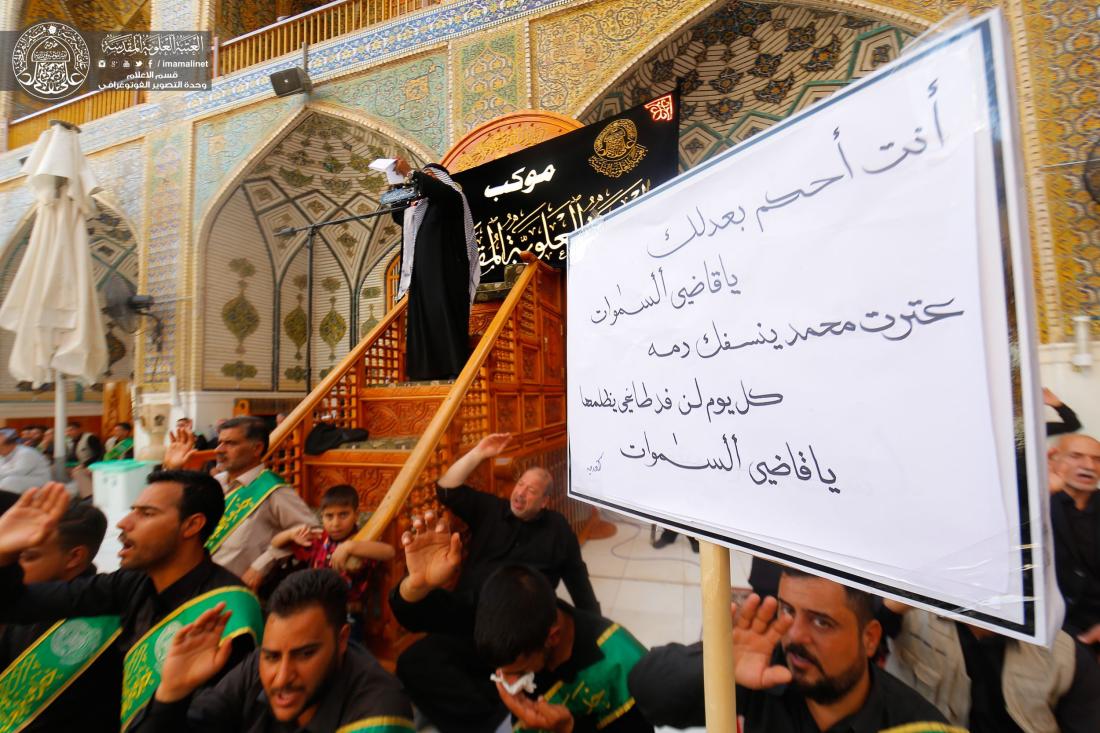 العتبة العلوية المقدسة
/ imamalinet
قسم الاعلام
وحدة التصوير الفوتوغرافي
موكب
العلوية
أنت أحكم بعدلك
ياقاضي ٱلسمٰوات
عترت محمد ينسفك دمه
كل يوم لن فد طاغي يظلمها
ياقاضي ٱلسمٰوات